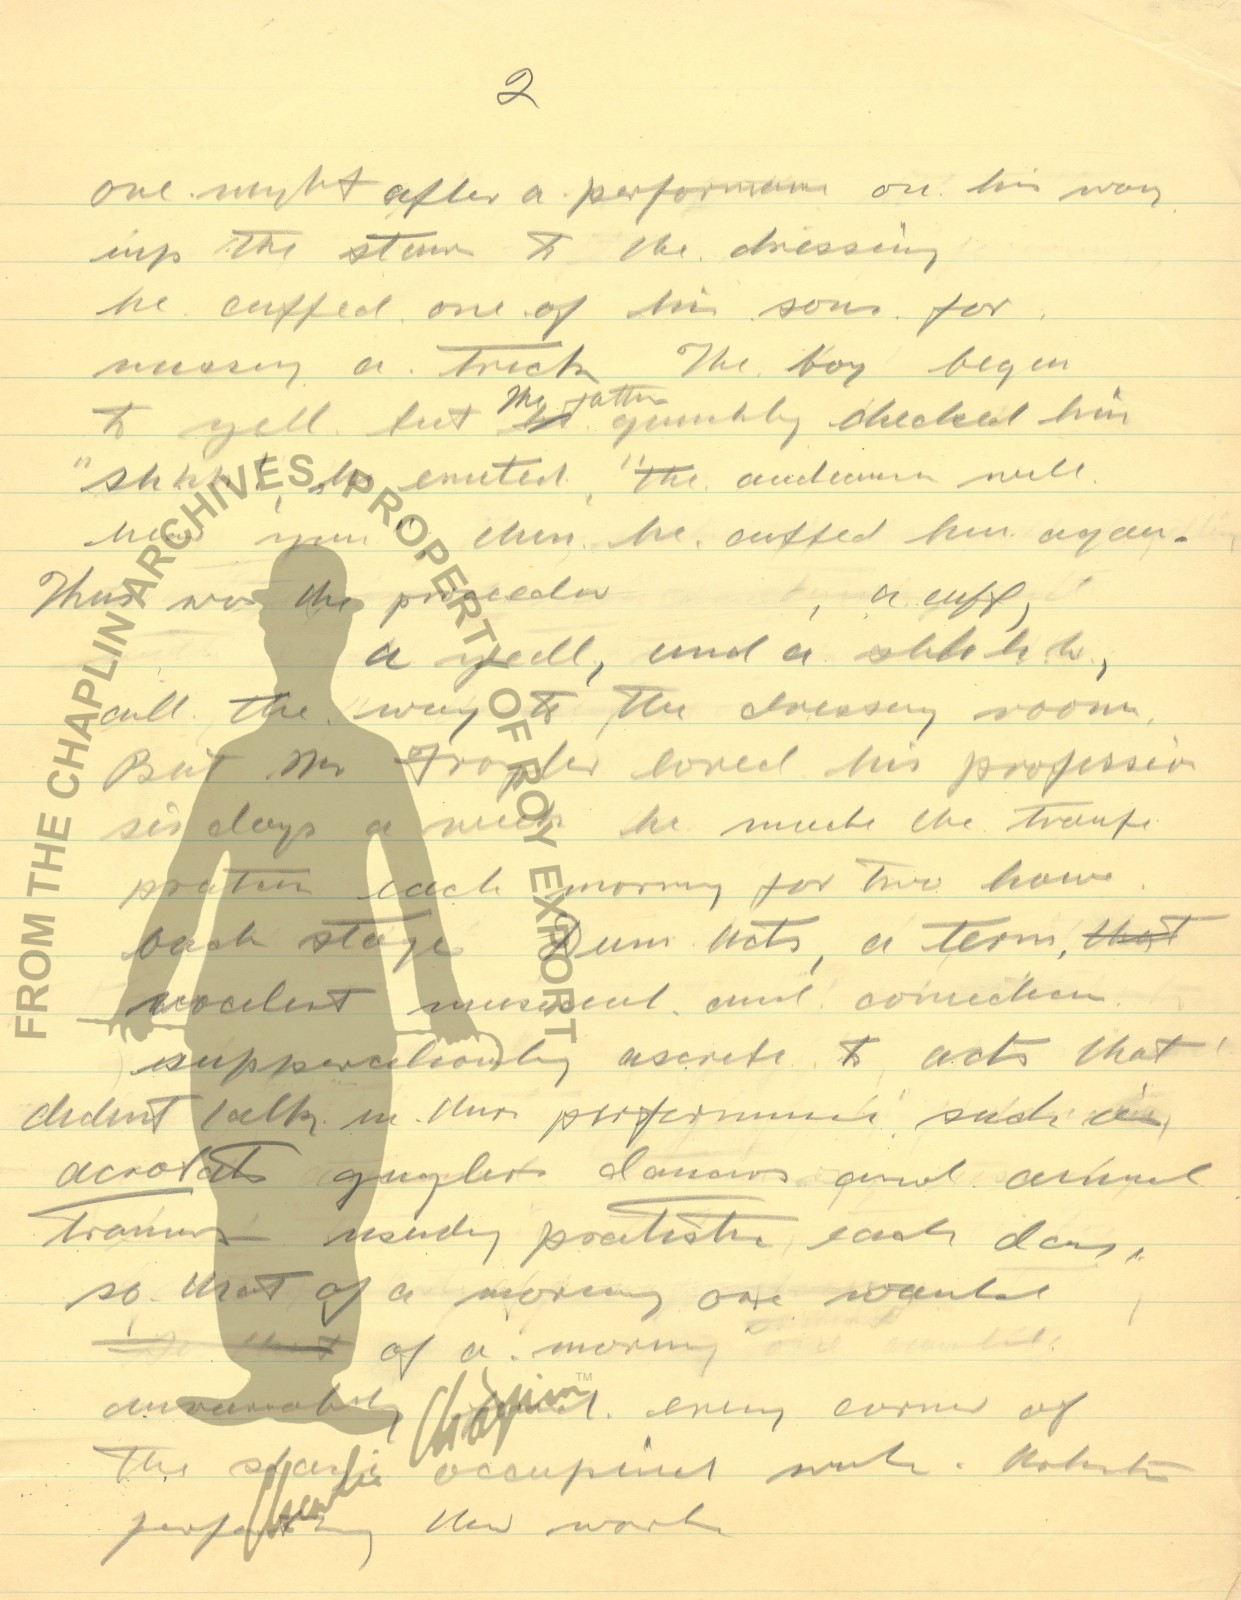 2
one night after a performance on his way
up the stairs to the dressing
he cuffed one of his sons for
missing a trick The boy began
to yell but the father quickly checked him
"shhh", he , "the audience will
hear you", then he cuffed him again.
This was the proceedor , a cuff,
a yell, and a shhhhh,
all the way to the dressing room.
But Mr loved his profession
six days a week he made the troupe
each morning for two hours
back stage Dum Acts, a term, that
musical and comedian
to acts that
didn't talk in their performance such as
acrobats dancers and animal
usually each day,
so that of a morning one
so that of a morning
every corner of
the stage occupied with
perfecting their work
FROM THE CHAPLIN ARCHIVES, PROPERTY OF ROY EXPORT
Charlie Chaplin™